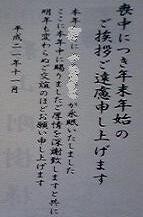 喪中につき年末年始の
ご挨拶ご遠慮申し上げます
本年
が永眠いたしました
ここに本年中に賜りましたご厚情を深謝致しますと共に
明年も変わらぬご交誼のほどお願い申し上げます
平成二一年十一月